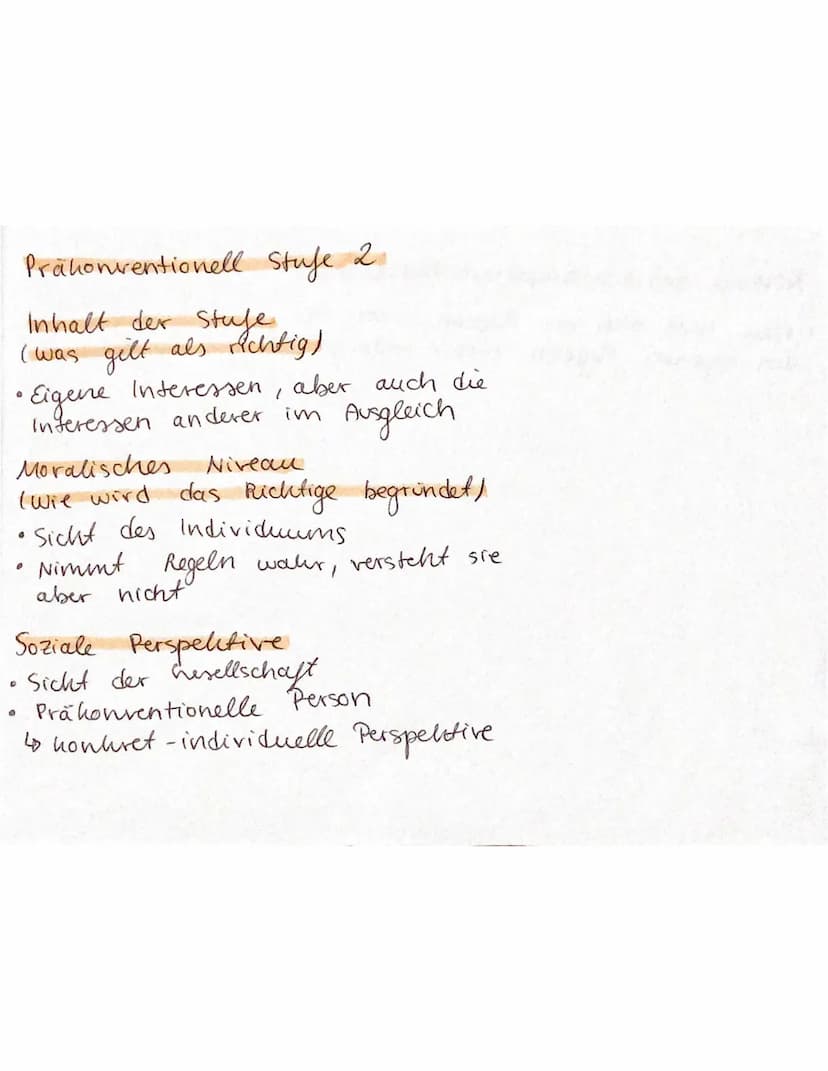 Präkonventionell Stufe 2
Inhalt der Stufe
(was gilt als richtig)
• Eigene Interessen, aber auch die
Interessen anderer im Ausgleich
Moralisches Niveau
(wie wird das Richtige begründet)
• Sicht des Individuums
• Nimmt Regeln wahr, versteht sie
aber nicht
Soziale Perspektive
• Sicht der Gesellschaft
• Präkonventionelle Person
↳ konkret-individuelle Perspektive